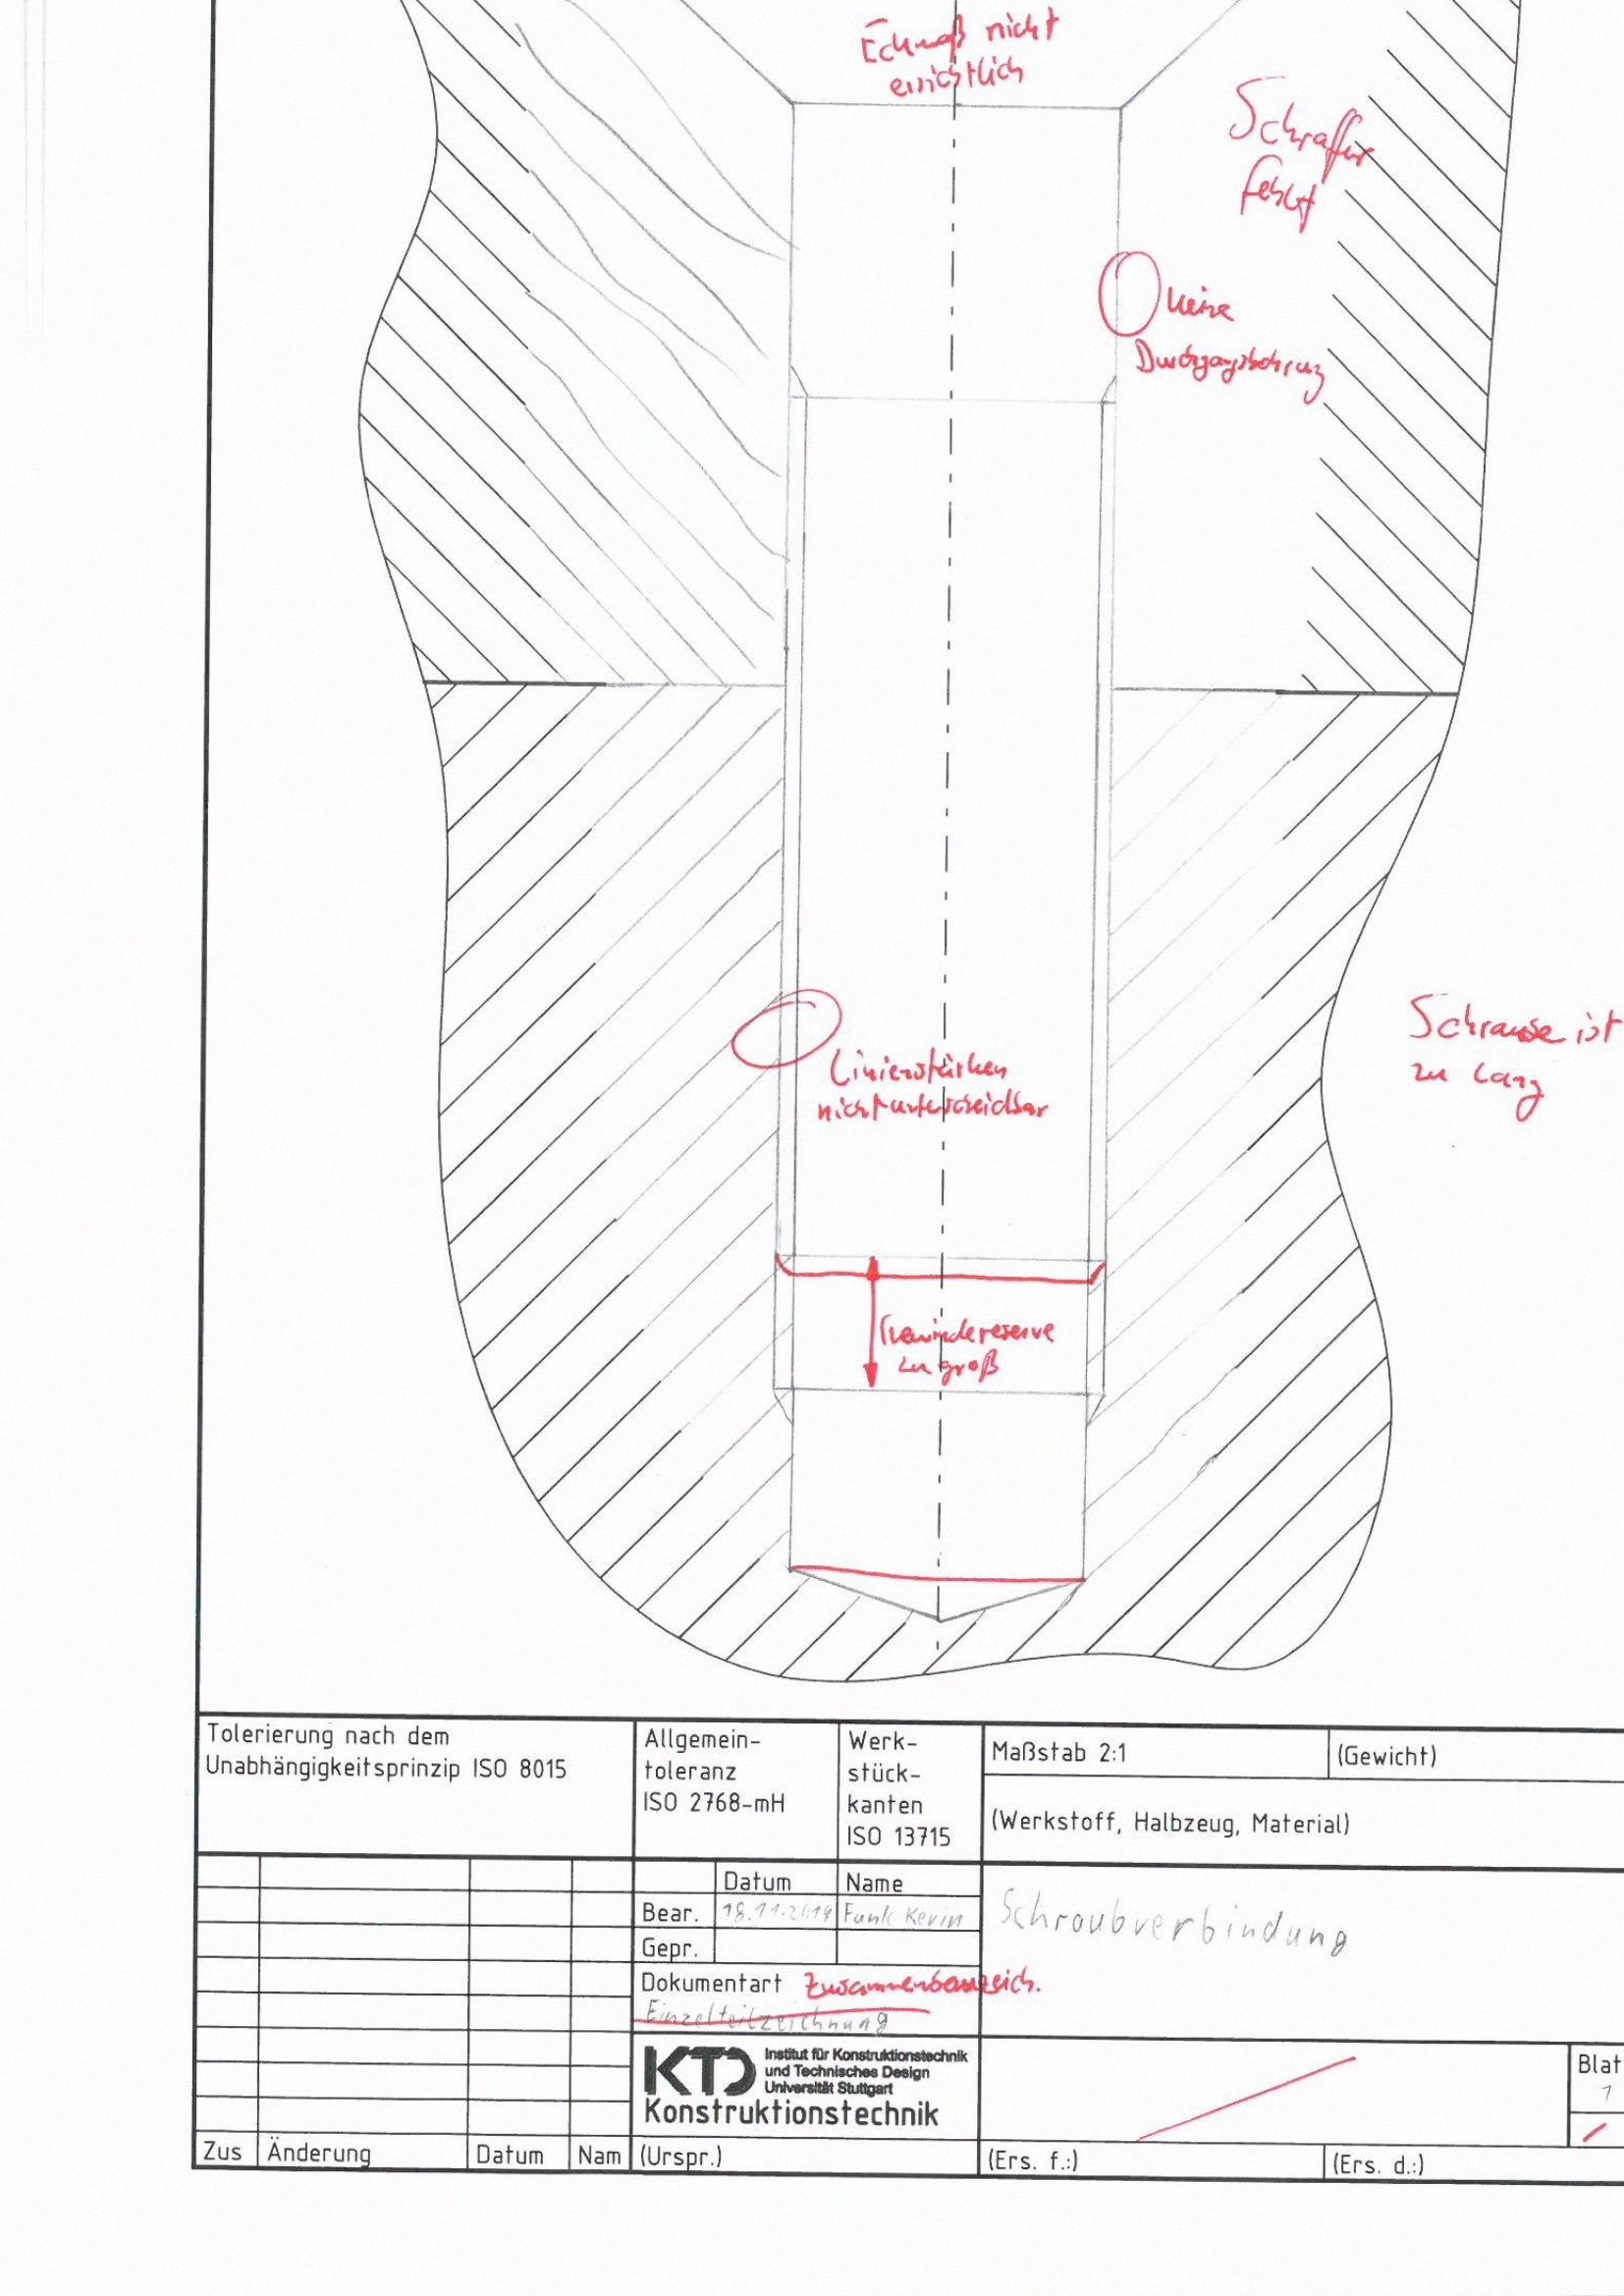 Eckmaß nicht
ersichtlich
Schraffur
fehlt
keine
Durchgangsbohrung
Schraube ist
zu lang
Linienstärken
nicht unterscheidbar
Gewindereserve
zu groß
Tolerierung nach dem
Unabhängigkeitsprinzip ISO 8015
Allgemein-
toleranz
ISO 2768-mH
Werk-
stück-
kanten
ISO 13715
Maßstab 2:1
(Gewicht)
(Werkstoff, Halbzeug, Material)
Datum Name
Bear. 18.11.2019 Funk Kevin
Gepr.
Schraubverbindung
Dokumentart Zusammenbauzeich.
Einzelteilzeichnung
KTD
Institut für Konstruktionstechnik
und Technisches Design
Universität Stuttgart
Konstruktionstechnik
Blat
1
Zus Änderung Datum Nam (Urspr.) (Ers. f.:) (Ers. d.:)